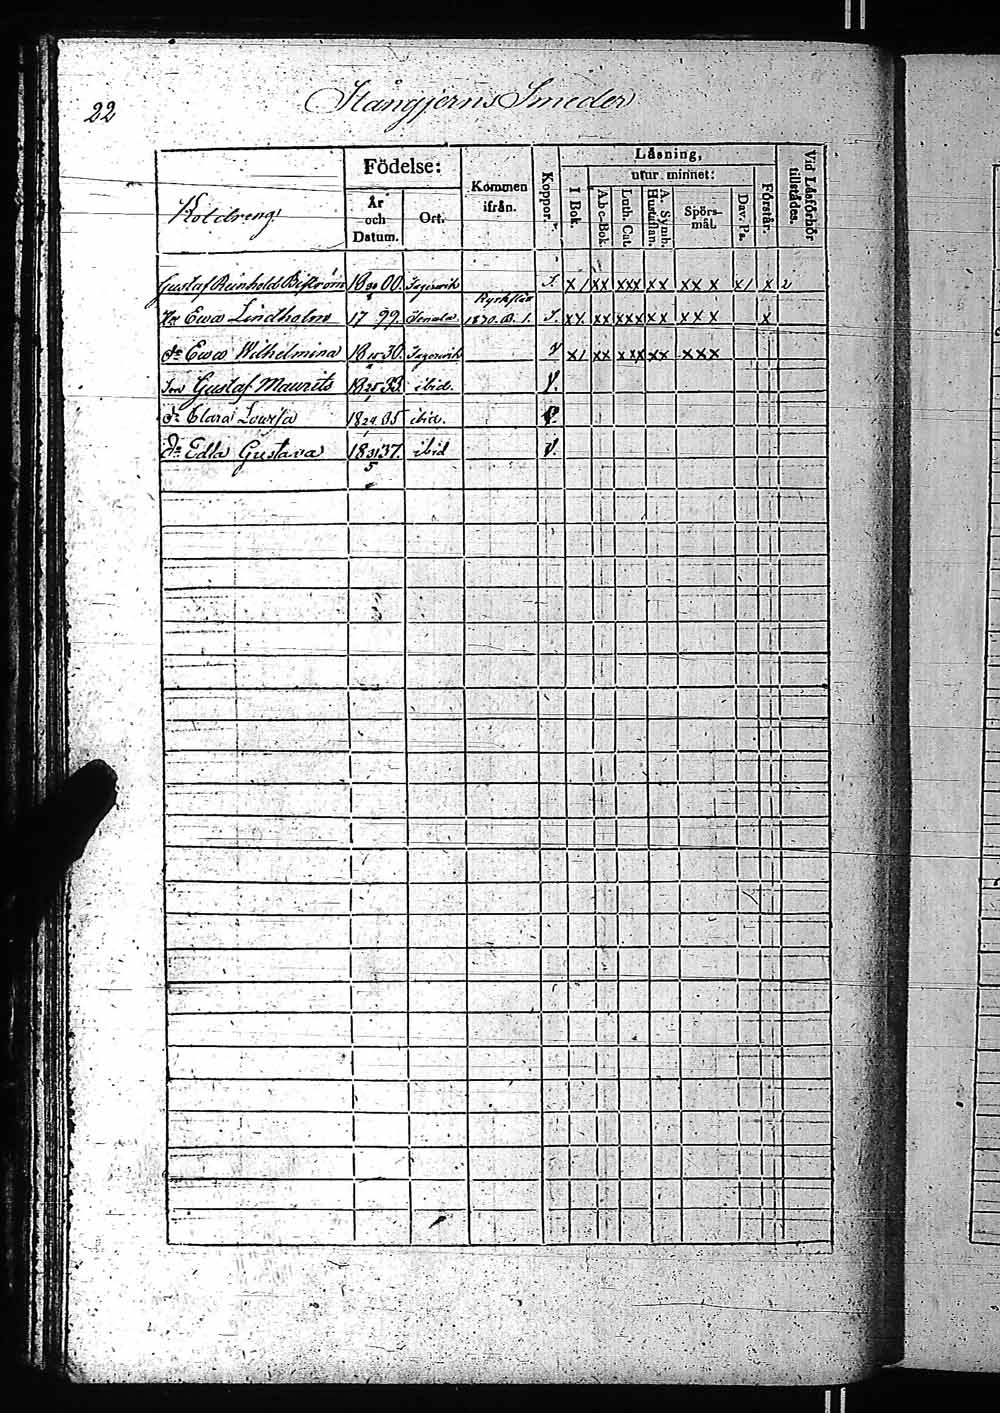 22
Stångjerns Smeder
Födelse:
Kommen ifrån.
Koppor.
Läsning,
utur minnet:
I Bok.
A b c-Bok.
Luth. Cat.
A. Symb. Hustaflan.
Spörs-mål.
Dav. Ps.
Förstår.
Vid Läsförhör tillstädes.
Koldreng
År och Datum.
Ort.
Gustaf Reinhold 18 00. S. x 1 xx xxx xx xx x x 1 x 2
Kyrkslätt
Hu Ewa Lindholm 17 99. 1830. S. xx xxx xx xxx x
dr Ewa Wilhelmina 18 30. v x 1 xx xxx xx xxx
Son Gustaf Maurits 18 25 33. ibid. v.
dr Clara Lovisa 18 24 35 ibid.
Dr Edla Gustava 18 31 37. ibid v.
5